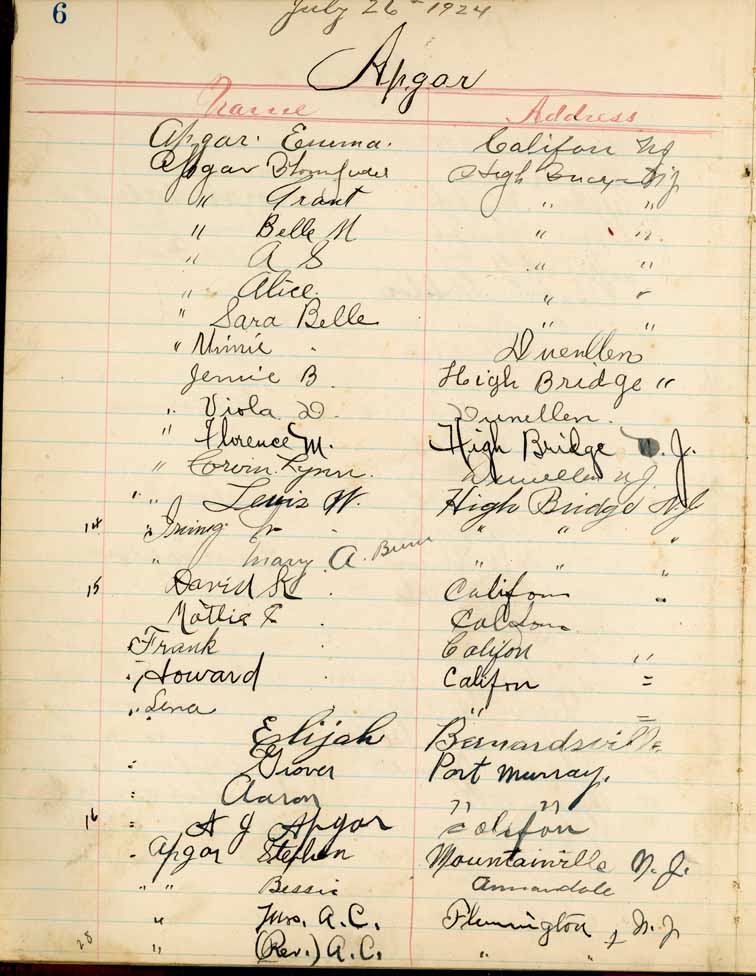 6
July 26th 1924
Apgar
Name Address
Apgar. Emma. Califon NJ
Apgar High NJ
" Grant " "
" Belle M " "
" A S " "
" Alice. " "
" Sara Belle " "
" Minnie Duenllen
Jennie B. High Bridge "
" Viola D. Dunellen.
" Florence M. High Bridge N. J.
" Corvin Lynn. Dunellen NJ.
" " Lewis W. High Bridge N.J.
14 " Irving " " "
" Mary A. " " "
15 David K. Califon "
Mattie Califon
" Frank Califon "
" Howard Califon =
" Lena " =
Elijah Bernardsville
: Grover Port Murray.
: Aaron " "
16 = A J Apgar Califon
- Apgar Stephen Mountainville N. J.
" " Bessie Annandale
" Mrs. A.C. Flemington, N. J
28 " (Rev.) A.C. " "